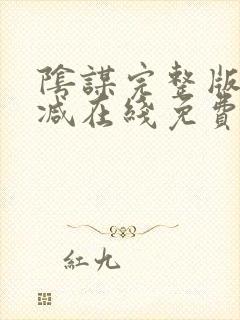 陰謀完整版
减在綫免費
紅九